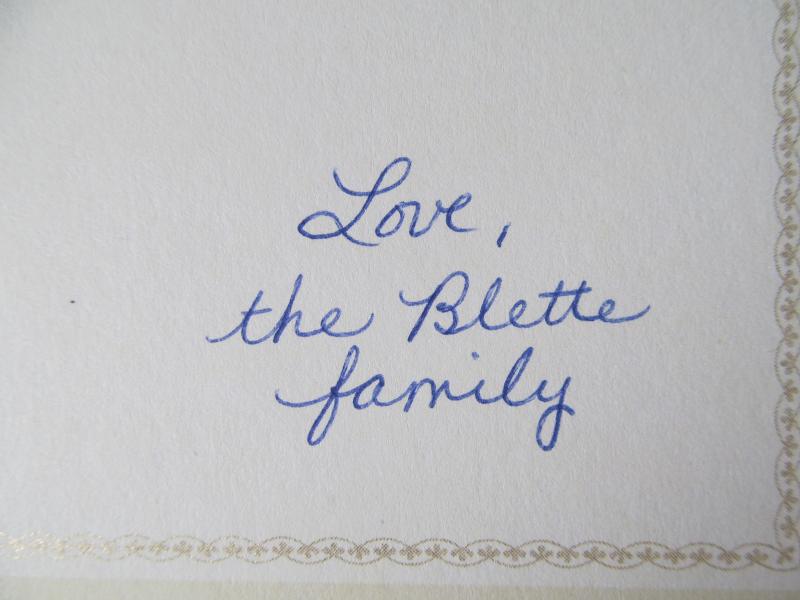 Love,
the Blette
family